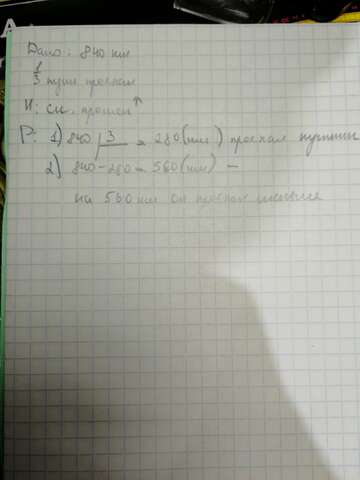 Дано: 840 км
1/3 пути проехал
Н: ск. прошёл ↑
Р: 1) 840 | 3 = 280 (км) проехал
2) 840 - 280 = 560 (км) —
на 560 км он проехал меньше